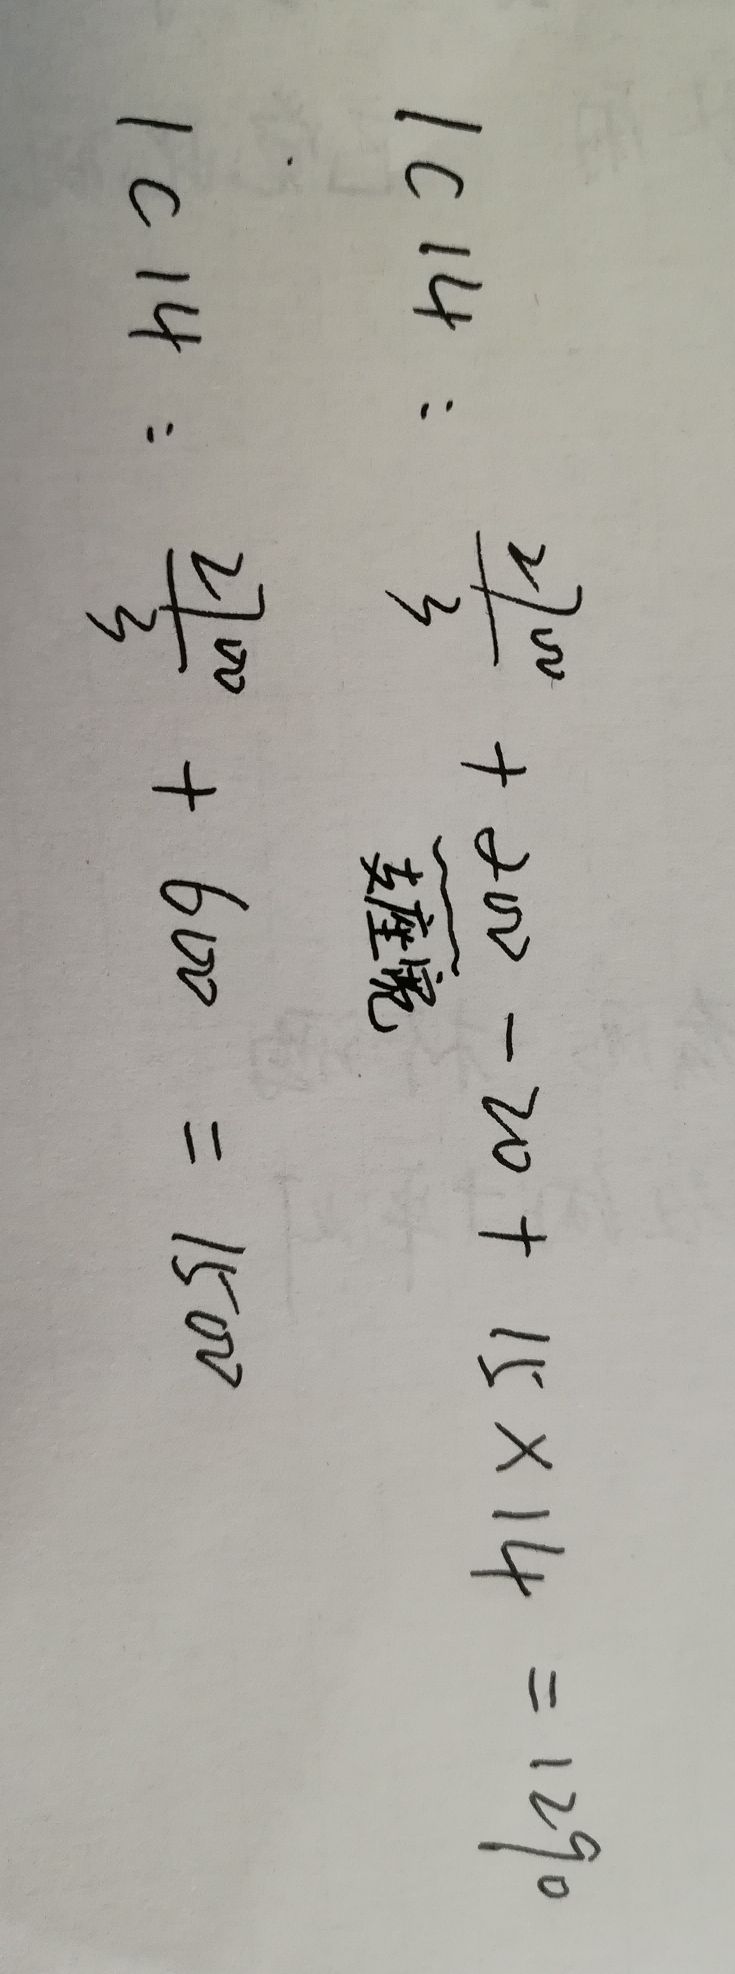 1C14: 2700/3 + 200 - 20 + 15×14 = 1290
支座宽
1C14: 2700/3 + 600 = 1500